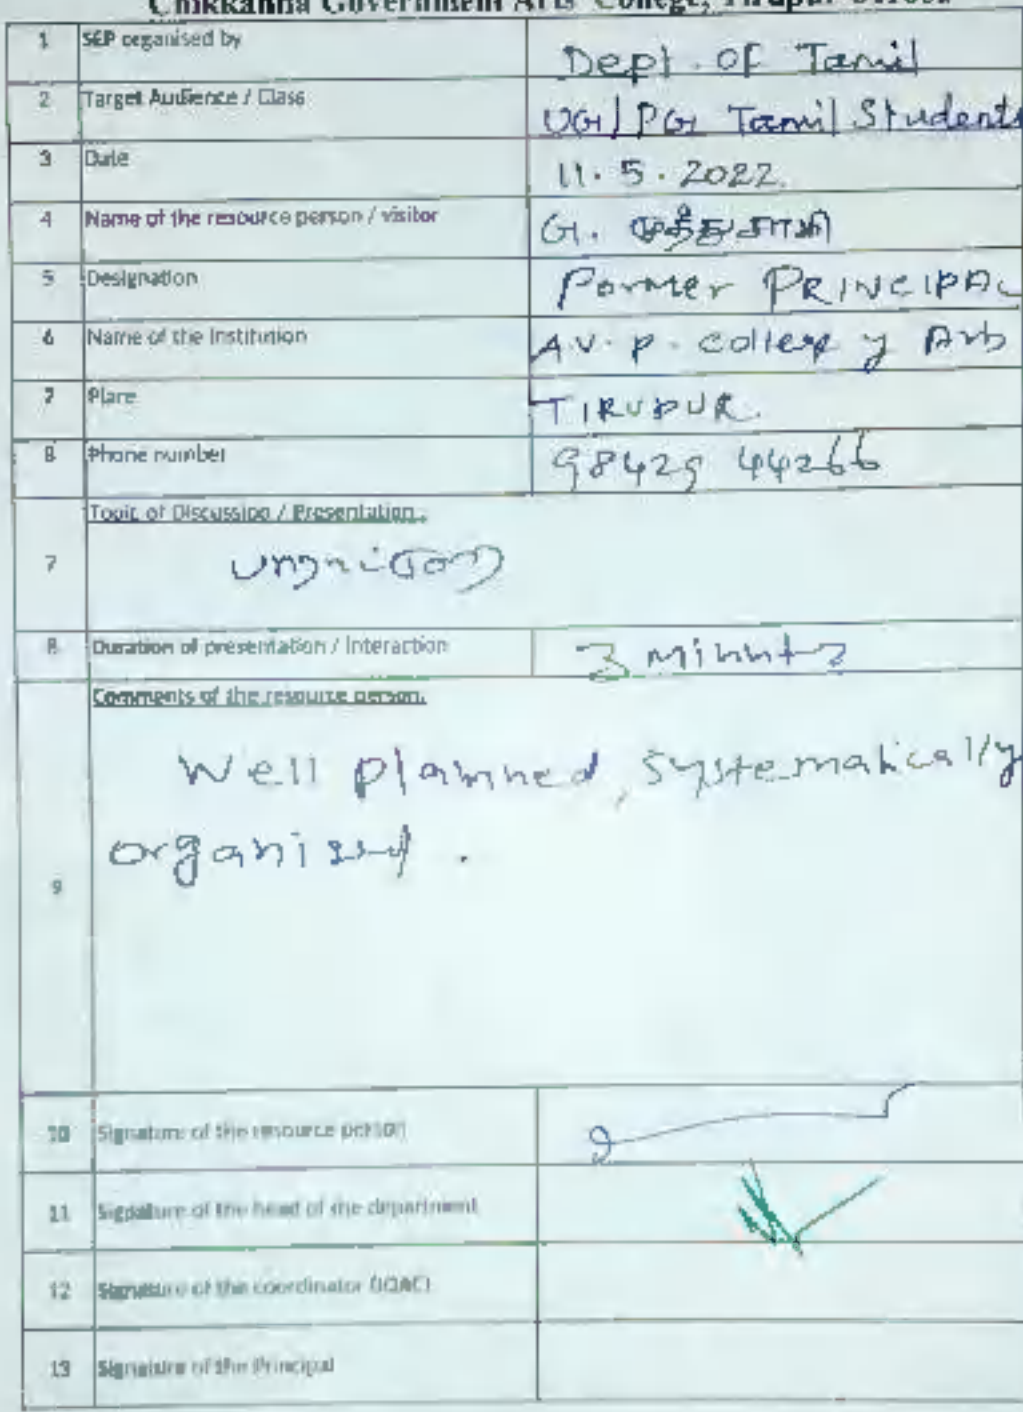 Chikkanna Government Arts College, Tirupur
1 SEP organised by Dept. of Tamil
2 Target Audience / Class UG / PG Tamil Students
3 Date 11.5.2022.
4 Name of the resource person / visitor G. முத்துசாமி
5 Designation Former PRINCIPAL
6 Name of the Institution A.V.P. College of Arts
7 Place TIRUPUR.
8 Phone number 98429 44266
Topic of Discussion / Presentation :
7
8 Duration of presentation / Interaction
Comments of the resource person.
Well planned, systematically
organised.
9
10 Signature of the resource person
11 Signature of the head of the department
12 Signature of the coordinator (IQAC)
13 Signature of the Principal